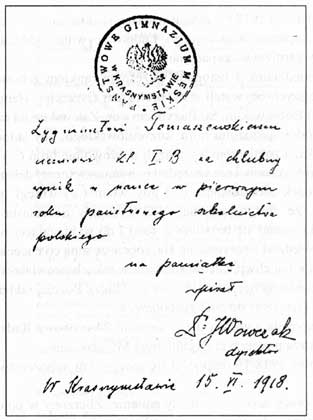 PAŃSTWOWE GIMNAZJUM MĘSKIE
W KRASNYMSTAWIE
Zygmuntowi Tomaszewskiemu
uczniowi kl. I. B za chlubny
wynik w nauce w pierwszym
roku państwowego szkolnictwa
polskiego
na pamiątkę
wpisał
Dr. J Wowczak
dyrektor
W Krasnymstawie 15. VI. 1918.